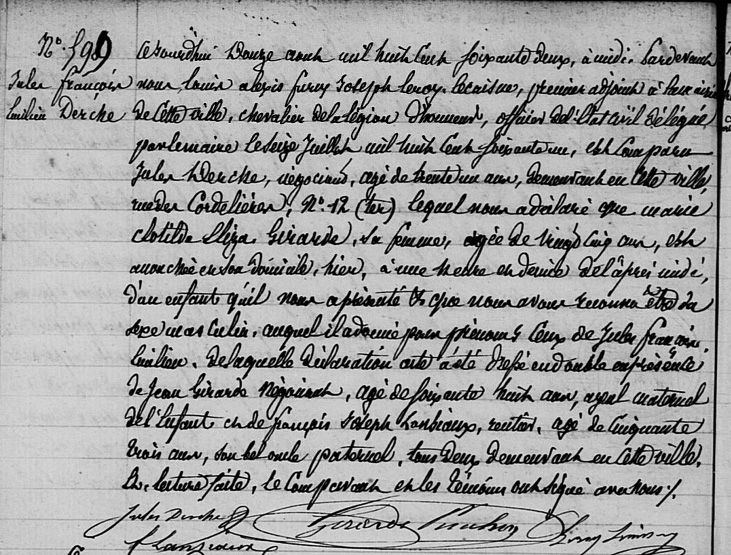 No. 599
Jules François
Émilien Derche
Cejourdhui Douze aout mil huit cent soixante deux, à midi. Pardevant
nous, Louis alexis furcy Joseph Leroy, premier adjoint à la mairie
de cette ville, chevalier de la légion d'honneur, officier de l'état civil délégué
par le maire le seize Juillet mil huit cent soixante un, est comparu
Jules Derche, négociant, agé de trente un ans, demeurant en cette ville,
rue des Cordelières, No. 12 (ter) lequel nous a déclaré que marie
Clotilde Eliza Girarde, sa femme, agée de vingt cinq ans, est
accouchée en son domicile, hier, à une heure en demie de l'après midi,
d'un enfant qu'il nous a présenté & que nous avons reconnu être du
sexe masculin, auquel il a donné pour prénoms ceux de Jules françois
Émilien. De laquelle déclaration acte a été dressé en double en présence
de Jean Girarde négociant, agé de soixante huit ans, ayeul maternel
de l'enfant et de françois Joseph, rentier, agé de cinquante
trois ans, son bel oncle paternel, tous deux demeurant en cette ville.
Et, lecture faite, le comparant et les témoins ont signé avec nous /.
Jules Derche Girarde